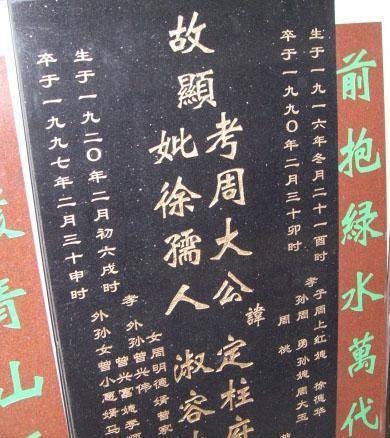 前抱綠水萬代
生于一九一六年冬月二十一酉时
卒于一九九〇年二月三十卯时
孝子周上紅媳徐德华
孙周勇孙媳周大玉
周桃
故顯
考周大公諱定柱府
妣徐孺人淑容
女周明德婿曾家
孝外孙曾兴伟
外孙曾兴富媳李顺
外孙女曾小惠婿马
生于一九二〇年二月初六戌时
卒于一九九七年二月三十申时
青山